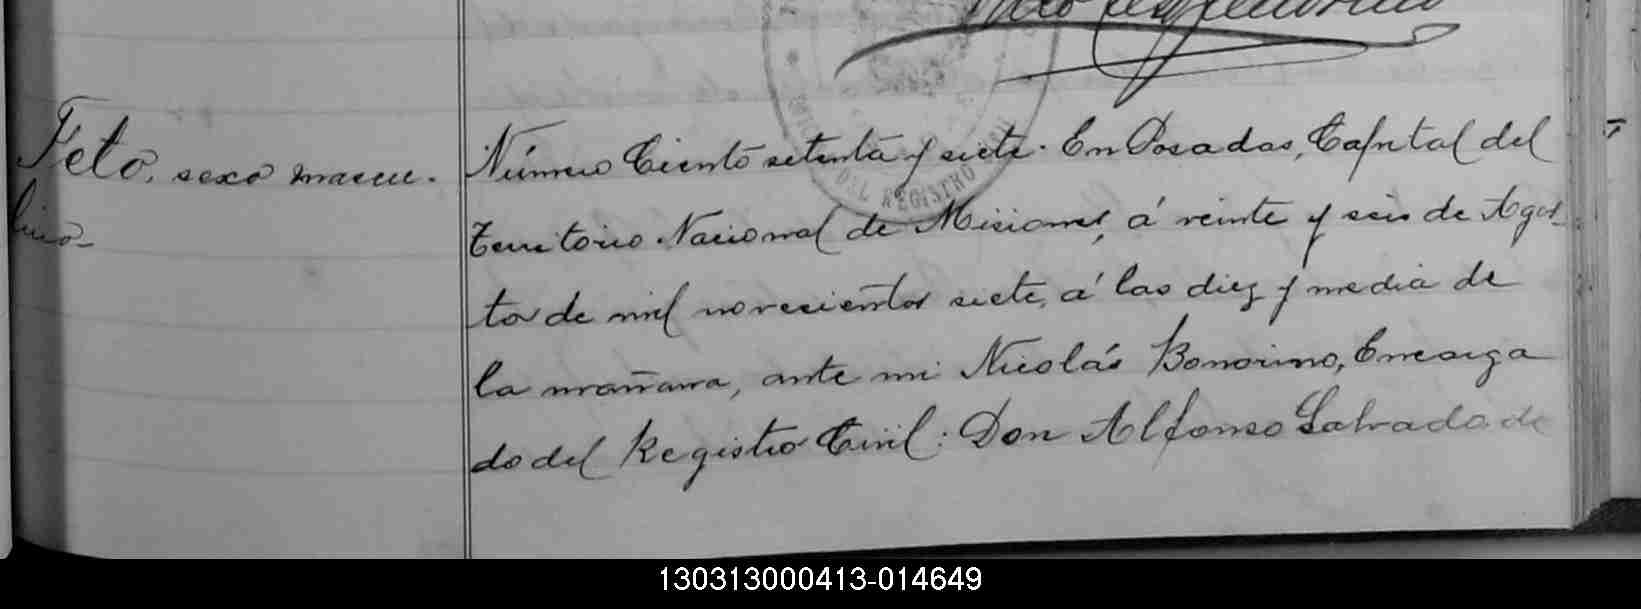 Feto, sexo mascu-
lino-
Número Ciento setenta y siete. En Posadas, Capital del
Territorio Nacional de Misiones, á veinte y seis de Agos-
to de mil novecientos siete, á las diez y media de
la mañana, ante mi Nicolás Bonorino, Encarga
do del Registro Civil: Don Alfonso Salvado de
DEL REGISTRO
130313000413-014649